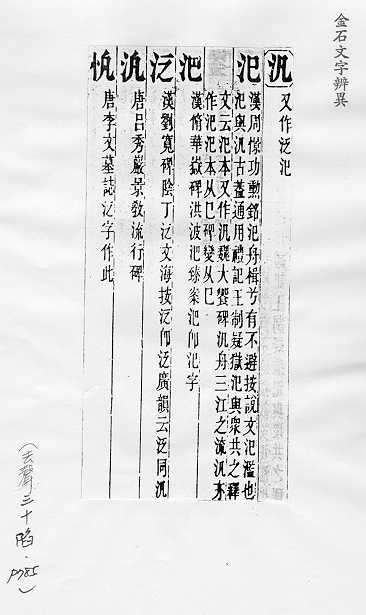 金石文字辨異
汎 又作泛氾
氾 漢周憬功勳銘氾舟楫兮有不避按說文氾濫也
氾與汎古蓋通用禮記王制疑獄氾與眾共之釋
文云氾本又作汎魏大饗碑汎舟三江之流汎亦
作氾氾本从㔾碑變从巳
汜 漢脩華嶽碑洪波汜臻案汜即氾字
泛 漢劉寬碑陰丁泛文海按泛即泛廣韻云泛同汎
唐呂秀巖景教流行碑
唐李文墓誌泛字作此
(去聲三十陷．P785)